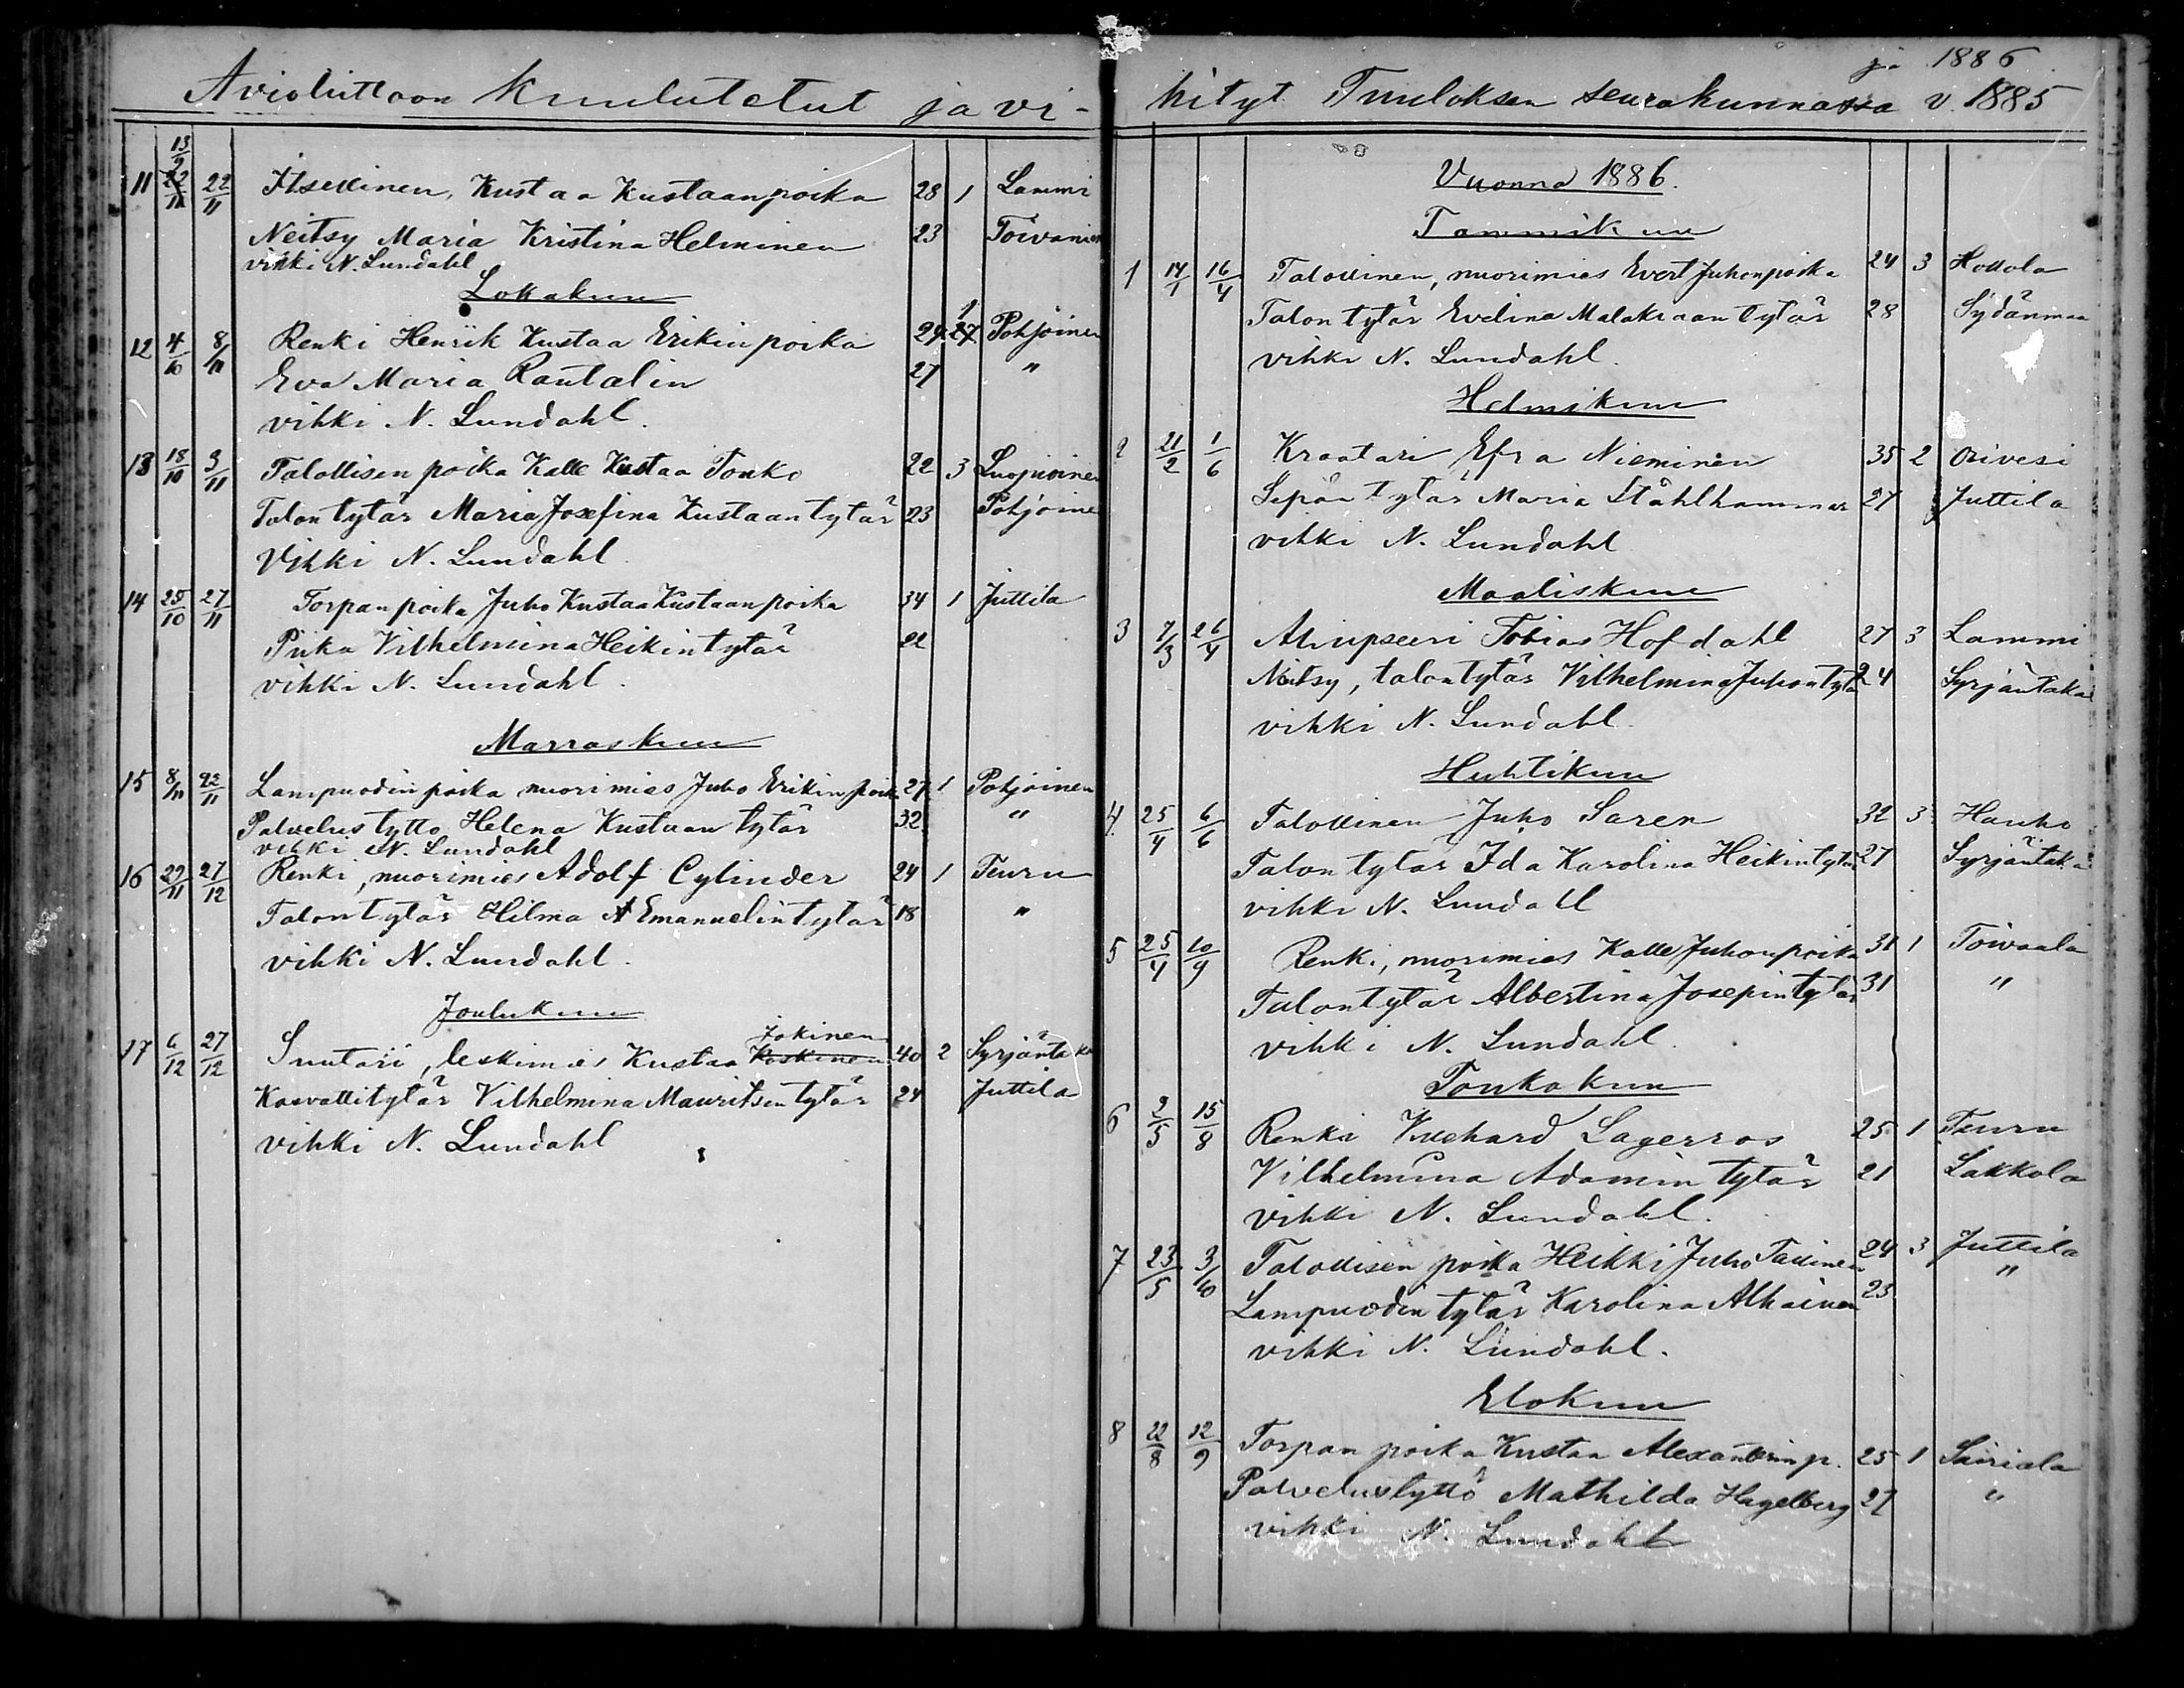 Avioliittoon kuulutetut ja vi-
11 13/9 22/11 Itsellinen, Kustaa Kustaanpoika 28 1 Lammi
Neitsy Maria Kristina Helminen 23
vihki N. Lundahl
Lokakuu
12 4/10 8/11 Renki Henrik Kustaa Erikinpoika 29 1 Pohjoinen
Eva Maria Rautalin 27 "
vihki N. Lundahl.
13 18/10 3/11 Talollisen poika Kalle Kustaa Tonko 22 3
Talontytär Maria Josefina Kustaantytär 23 Pohjoine
Vihki N. Lundahl
14 25/10 27/11 Torpanpoika Juho Kustaa Kustaanpoika 34 1 Juttila
Piika Vilhelmina Heikintytär 22
vihki N. Lundahl.
Marraskuu
15 8/11 22/11 Lampuodin poika nuorimies Juho Erikin poika 27 1 Pohjoinen
Palvelustyttö Helena Kustaan tytär 32 "
vihki N. Lundahl
16 29/11 27/12 Renki, nuorimies Adolf Cylinder 24 1 Teuru
Talontytär Hilma Emanuelintytär 18 "
vihki N. Lundahl.
Joulukuu
Jokinen
17 6/12 27/12 Suutari, leskimies Kustaa Koskinen 40 2 Syrjäntaka
Kasvattitytär Vilhelmina Mauritsintytär 24 Juttila
vihki N. Lundahl
ja 1886
hityt Tuuloksen seurakunnassa v. 1885
Vuonna 1886.
Tammikuu
1 17/1 16/4 Talollinen, nuorimies Evert Juhonpoika 24 3 Hollola
Talontytär Evelina Malakiaantytär 28 Sydänmaa
vihki N. Lundahl.
Helmikuu
2 21/2 1/6 Kraatari Efra Nieminen 35 2 Orivesi
Sepän tytär Maria Stålhammar 27 Juttila
vihki N. Lundahl
Maaliskuu
3 7/3 26/4 Aliupseeri Tobias Hofdahl 27 3 Lammi
Neitsy, talontytär Vilhelmina Juhontytär 24 Syrjäntaka
vihki N. Lundahl.
Huhtikuu
4 25/4 6/6 Talollinen Juho Saren 32 3 Hauho
Talontytär Ida Karolina Heikintytär 27 Syrjäntaka
vihki N. Lundahl
5 25/4 10/9 Renki, nuorimies Kalle Juhonpoika 31 1 Toivaala
Talontytär Albertina Josepintytär 31 "
vihki N. Lundahl.
Toukokuu
6 2/5 15/8 Renki Lagerros 25 1 Teuru
Vilhelmina Adamin tytär 21 Lakkola
vihki N. Lundahl.
7 23/5 3/10 Talollisen poika Heikki Juho Tallinen 24 3 Juttila
Lampuodin tytär Karolina Alhainen 23 "
vihki N. Lundahl.
Elokuu
8 22/8 12/9 Torpan poika Kustaa Alexanterin p. 25 1 Sairiala
Palvelustyttö Mathilda Hagelberg 27 "
vihki N. Lundahl